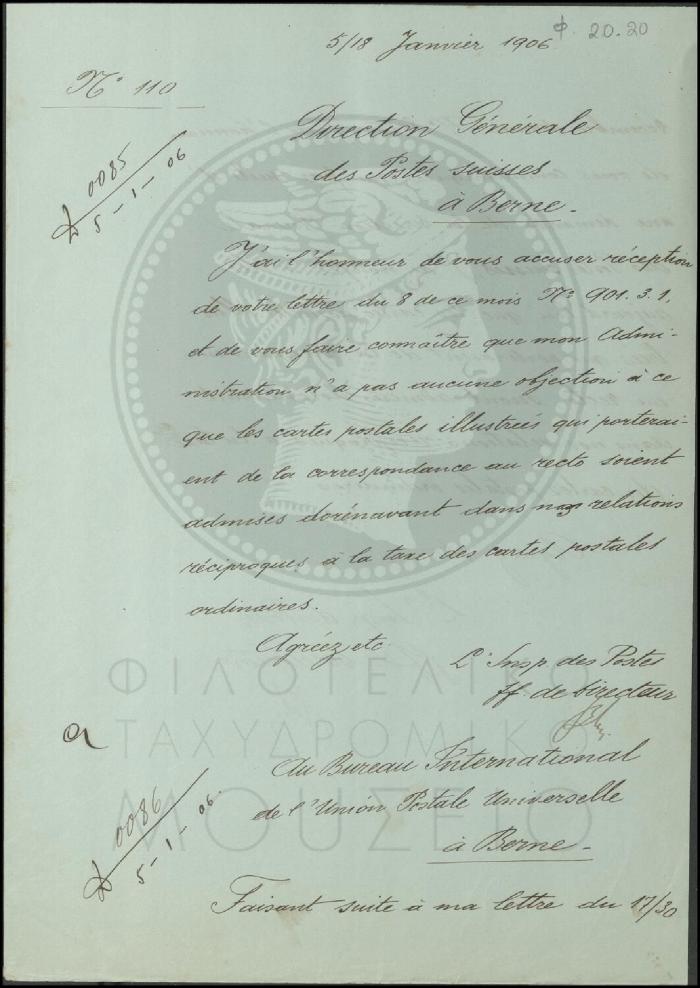 Φ. 20.20
5/18 Janvier 1906
N° 110
Direction Générale
des Postes suisses
à Berne.
0085
5-1-06
J'ai l'honneur de vous accuser réception
de votre lettre du 8 de ce mois N° 901.3.1,
et de vous faire connaître que mon Admi-
nistration n'a pas aucune objection à ce
que les cartes postales illustrées qui porterai-
ent de la correspondance au recto soient
admises dorénavant dans nos relations
réciproques à la taxe des cartes postales
ordinaires.
Agréez etc
L'Insp. des Postes
ff. de directeur
ΦΙΛΟΤΕΛΙΚΟ
ΤΑΧΥΔΡΟΜΙΚΟ
ΜΟΥΣΕΙΟ
Au Bureau International
de l'Union Postale Universelle
à Berne.
0086
5-1-06.
Faisant suite à ma lettre du 17/30